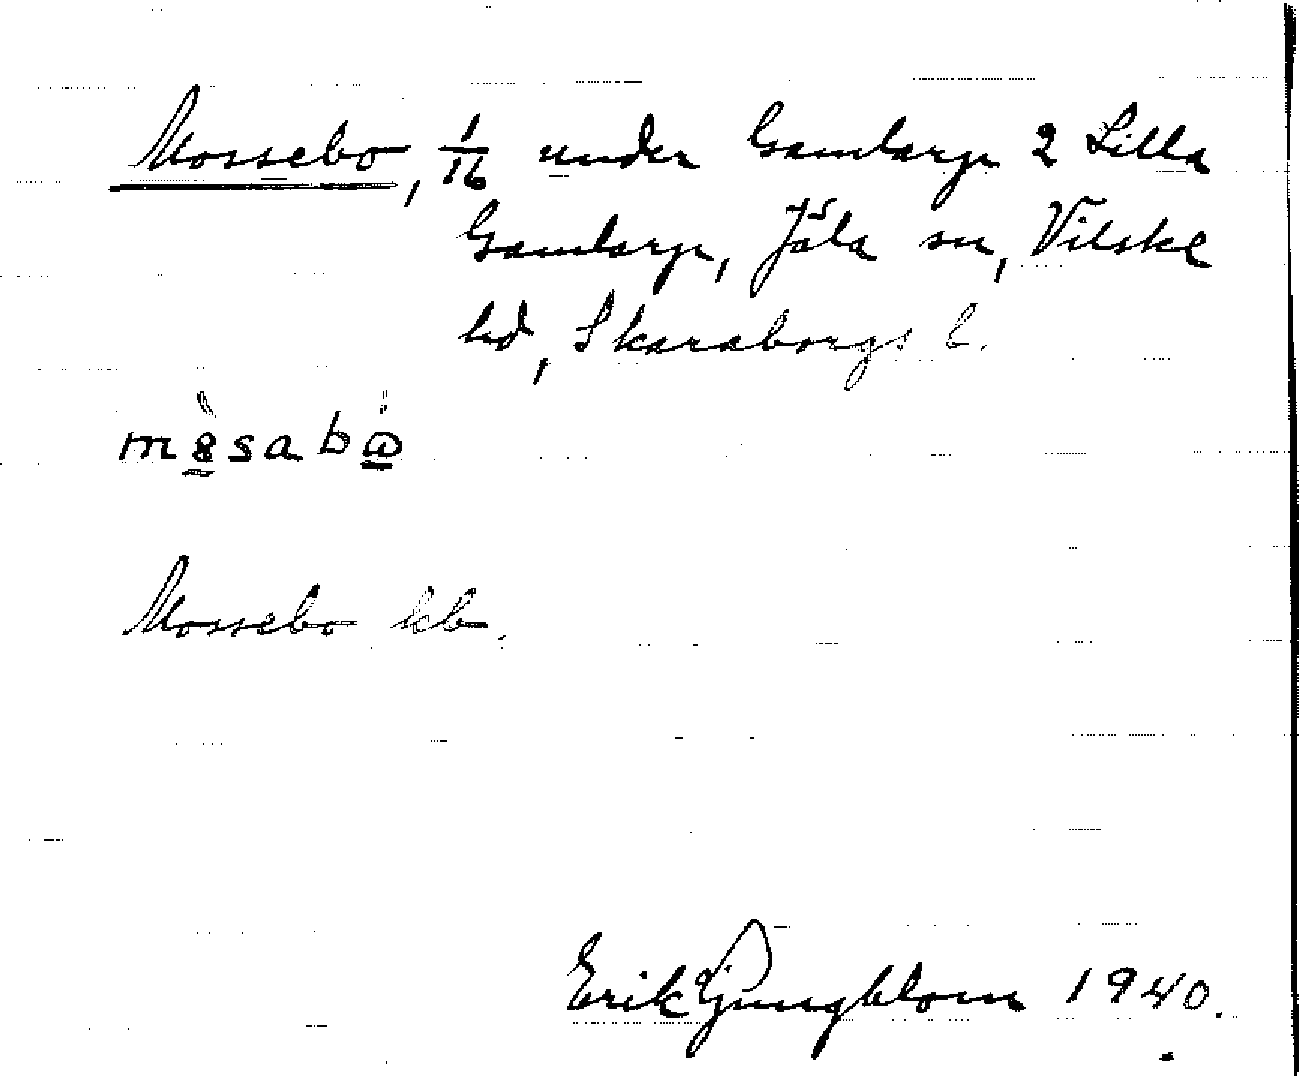 Mossebo, 1/16 under Gamlarp 2 Lilla
Gamlarp, Jäla sn, Vilske
hd, Skaraborgs l.
Mossebo kb.
Erik Ljungblom 1940.